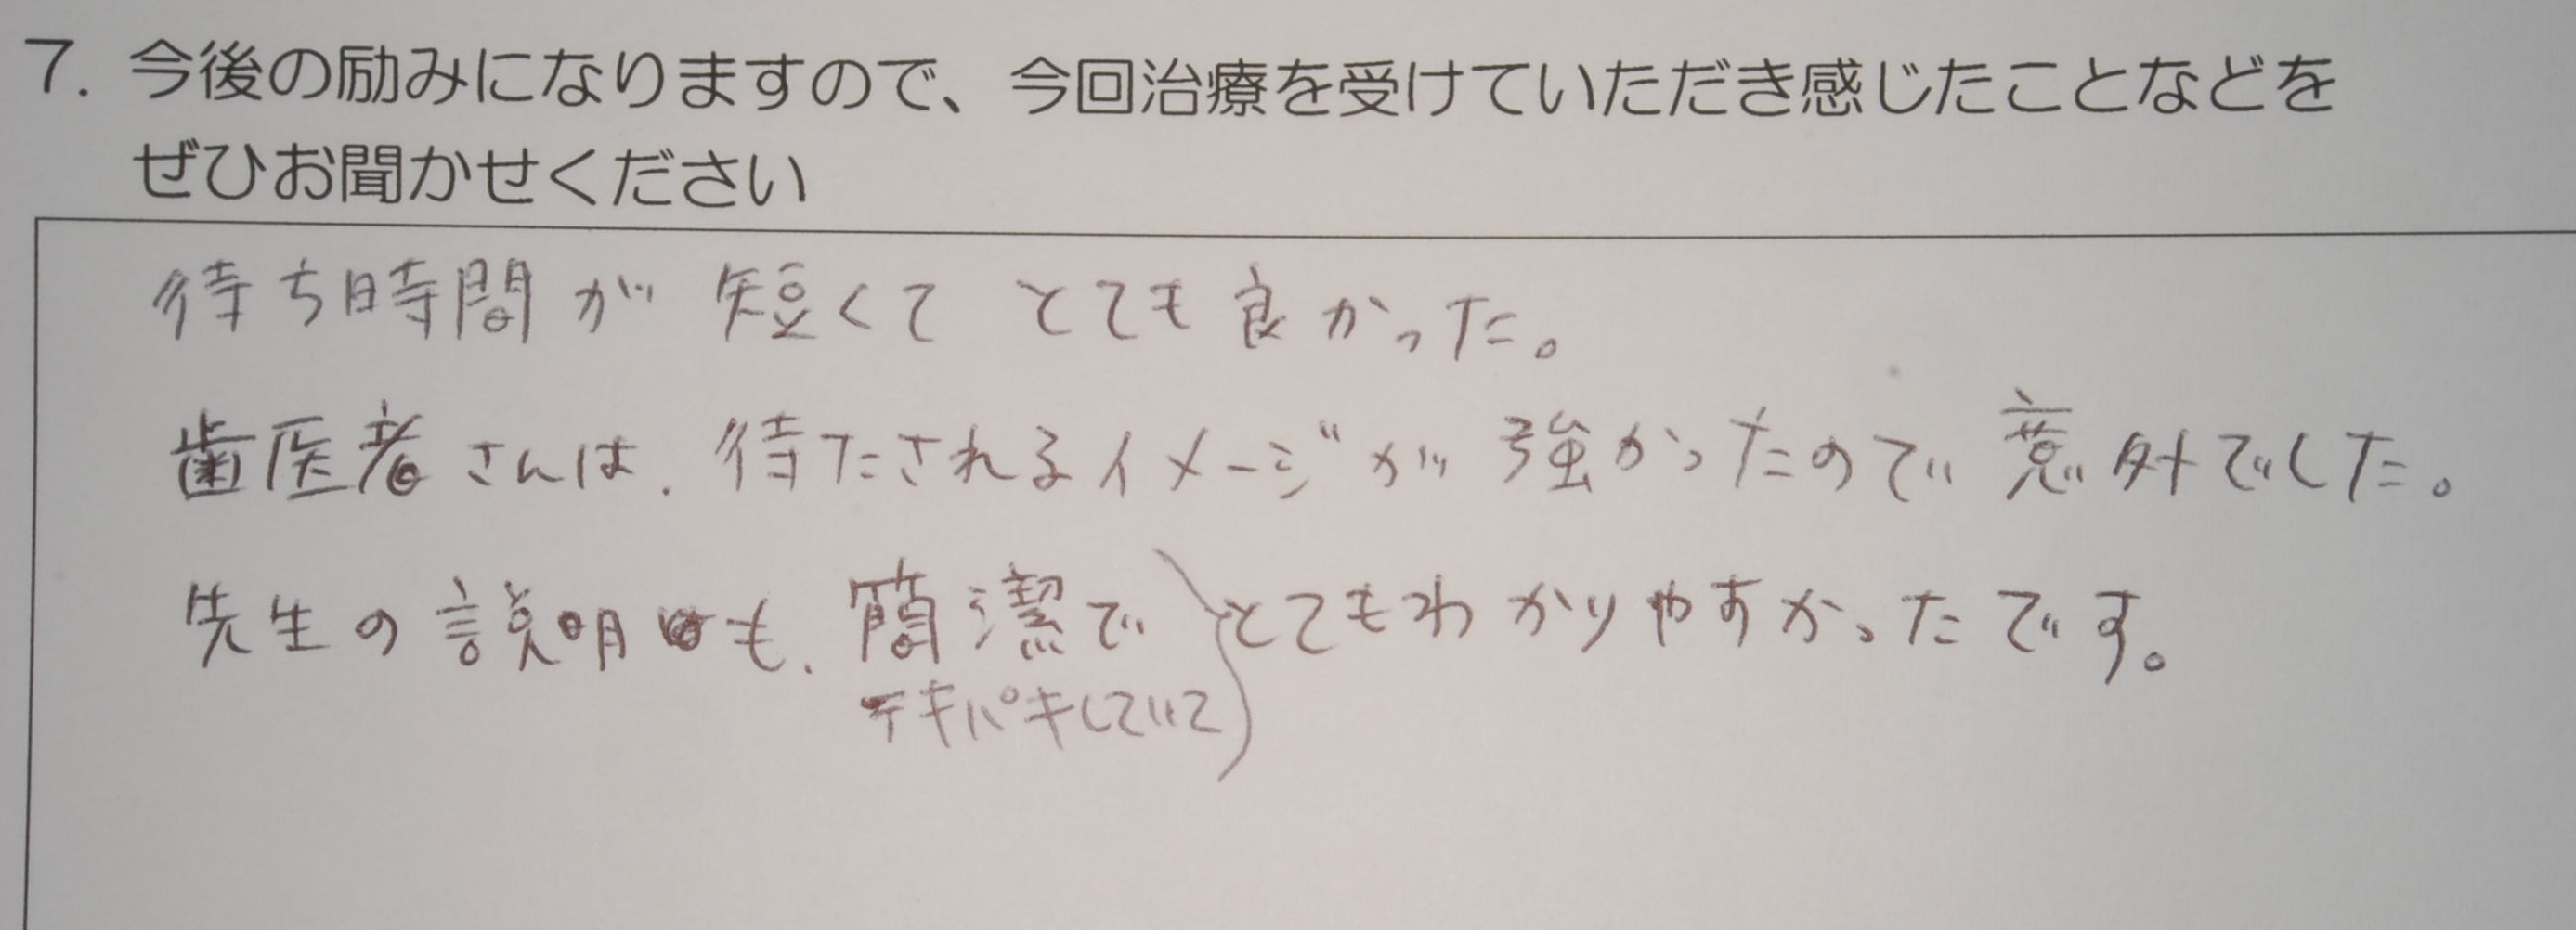 7. 今後の励みになりますので、今回治療を受けていただき感じたことなどを
ぜひお聞かせください
待ち時間が短くてとても良かった。
歯医者さんは、待たされるイメージが強かったので意外でした。
先生の説明も、簡潔でとてもわかりやすかったです。
テキパキしていて